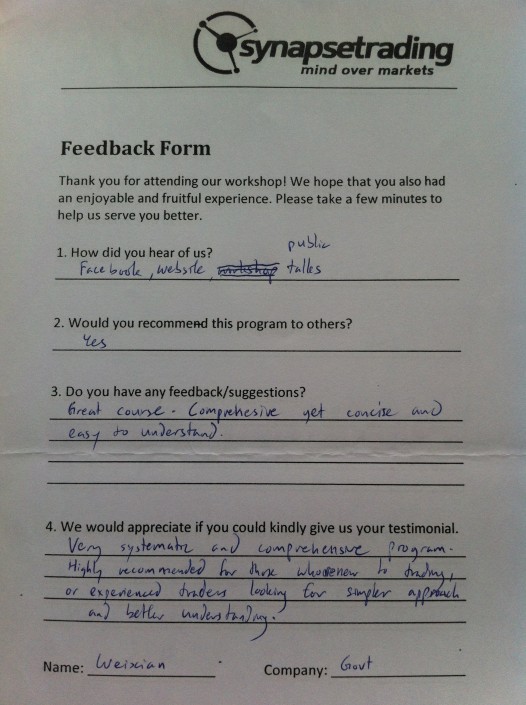 synapsetrading
mind over markets
Feedback Form
Thank you for attending our workshop! We hope that you also had
an enjoyable and fruitful experience. Please take a few minutes to
help us serve you better.
1. How did you hear of us?
public
Facebook, website, workshop talks
2. Would you recommend this program to others?
Yes
3. Do you have any feedback/suggestions?
Great course. Comprehesive yet concise and
easy to understand.
4. We would appreciate if you could kindly give us your testimonial.
Very systematic and comprehensive program.
Highly recommended for those who new to trading,
or experienced traders looking for simpler approach
and better understanding.
Name: Weixian Company: Govt